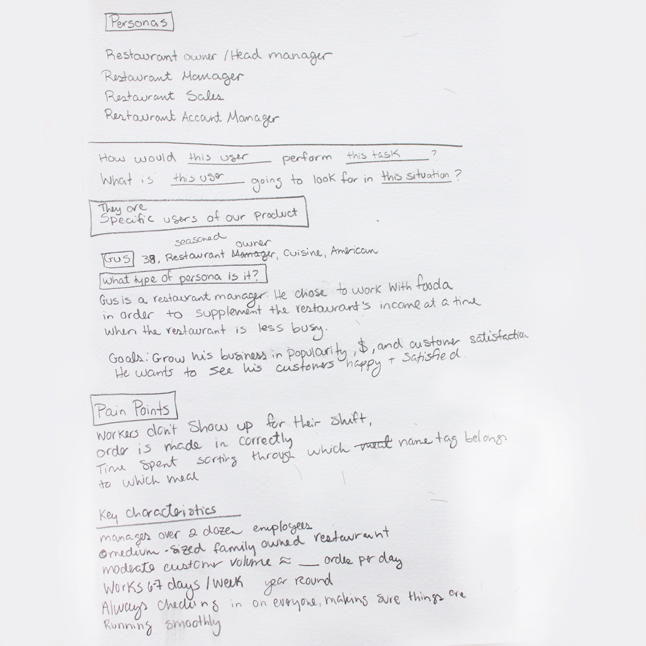 Personas
Restaurant owner / Head manager
Restaurant Manager
Restaurant Sales
Restaurant Account Manager
How would this user perform this task ?
What is this user going to look for in this situation ?
They are
Specific users of our product
seasoned owner
Gus 38, Restaurant Manager, Cuisine, American
What type of persona is it?
Gus is a restaurant manager. He chose to work with fooda
in order to supplement the restaurant's income at a time
when the restaurant is less busy.
Goals: Grow his business in popularity, $, and customer satisfaction
He wants to see his customers happy + satisfied.
Pain Points
workers don't show up for their shift,
order is made in correctly
Time spent sorting through which meal name tag belongs
to which meal
Key Characteristics
manages over 2 dozen employees
medium-sized family owned restaurant
moderate customer volume ≈ __ order per day
Works 6-7 days / week year round
Always checking in on everyone, making sure things are
Running smoothly